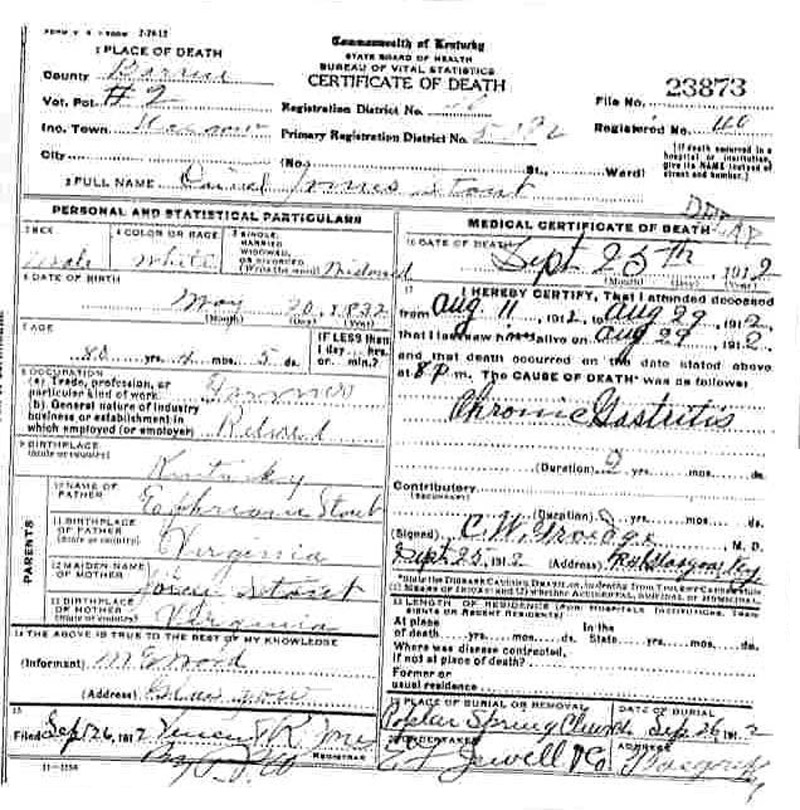 Commonwealth of Kentucky
STATE BOARD OF HEALTH
BUREAU OF VITAL STATISTICS
CERTIFICATE OF DEATH
1 PLACE OF DEATH
County Barren
Vot. Pct. #2
Inc. Town Glasgow
City
Registration District No.
Primary Registration District No.
(No. St., Ward)
File No. 23873
Registered No.
(If death occurred in a hospital or institution, give its NAME instead of street and number.)
2 FULL NAME Jones Stout
PERSONAL AND STATISTICAL PARTICULARS
3 SEX
Male
4 COLOR OR RACE
White
5 SINGLE, MARRIED, WIDOWED, OR DIVORCED (Write the word) Widowed
6 DATE OF BIRTH
May 20, 1832
(Month) (Day) (Year)
7 AGE
80 yrs. 4 mos. 5 ds.
IF LESS than 1 day... hrs. or... min.?
8 OCCUPATION
(a) Trade, profession, or particular kind of work Farmer
(b) General nature of industry business or establishment in which employed (or employer) Retired
9 BIRTHPLACE
(State or country)
Kentucky
PARENTS
10 NAME OF FATHER
Stout
11 BIRTHPLACE OF FATHER
(State or country)
Virginia
12 MAIDEN NAME OF MOTHER
Stout
13 BIRTHPLACE OF MOTHER
(State or country)
Virginia
14 THE ABOVE IS TRUE TO THE BEST OF MY KNOWLEDGE
(Informant)
(Address) Glasgow
15
Filed Sept 26, 1912
REGISTRAR
11-3184
MEDICAL CERTIFICATE OF DEATH
16 DATE OF DEATH
Sept 25th, 1912
(Month) (Day) (Year)
17
I HEREBY CERTIFY, That I attended deceased
from Aug. 11, 1912, to Aug 29, 1912,
that I last saw him alive on Aug 29, 1912,
and that death occurred on the date stated above
at 8 P.m. The CAUSE OF DEATH* was as follows:
Chronic Gastritis
(Duration) 2 yrs. mos. ds.
Contributory
(SECONDARY)
(Duration) yrs. mos. ds.
(Signed) C. W. M. D.
Sept 25, 1912 (Address) Glasgow, Ky
18 LENGTH OF RESIDENCE (FOR HOSPITALS, INSTITUTIONS, TRANSIENTS OR RECENT RESIDENTS)
At place of death yrs. mos. ds.
In the State yrs. mos. ds.
Where was disease contracted,
if not at place of death?
Former or
usual residence
19 PLACE OF BURIAL OR REMOVAL
Poplar Spring Church
DATE OF BURIAL
Sept 26, 1912
20 UNDERTAKER
Jewell & Co
ADDRESS
Glasgow